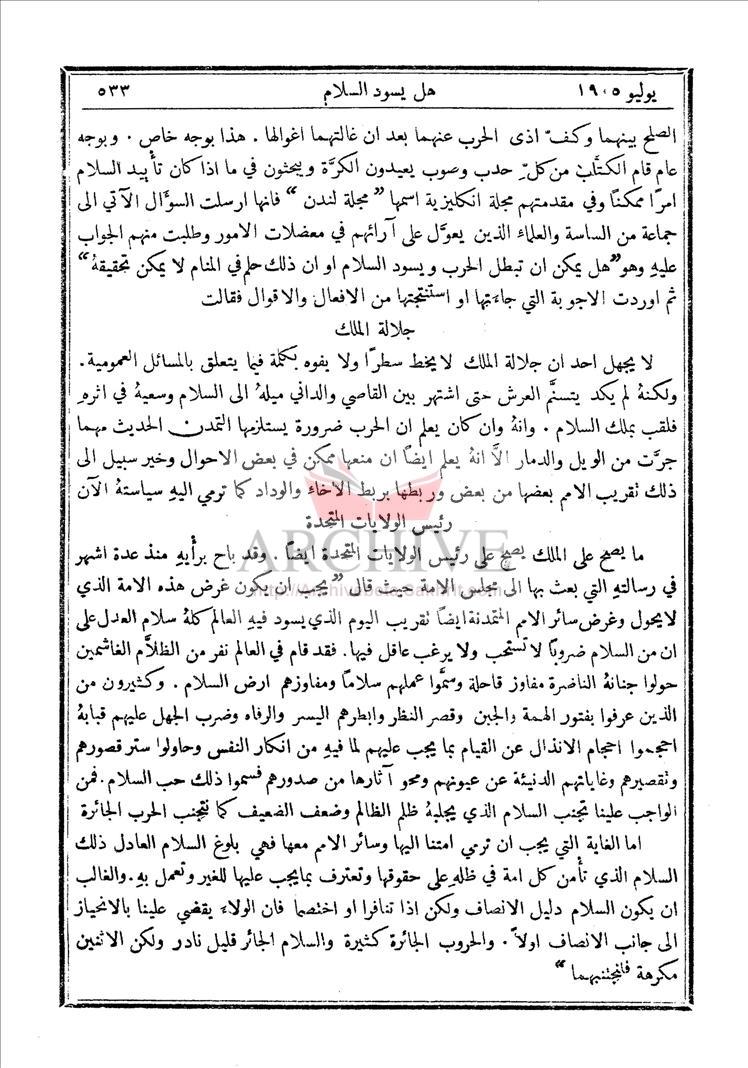 يوليو ١٩٠٥ هل يسود السلام ٥٣٣
الصلح بينهما وكفّ اذى الحرب عنهما بعد ان غالتهما اغوالها . هذا بوجه خاص . وبوجه
عام قام الكتَّاب من كلّ حدب وصوب يعيدون الكرَّة ويبحثون في ما اذا كان تأييد السلام
امرًا ممكنًا وفي مقدمتهم مجلة انكليزية اسمها "مجلة لندن" فانها ارسلت السوَّال الآتي الى
جماعة من الساسة والعلماء الذين يعوَّل على آرائهم في معضلات الامور وطلبت منهم الجواب
عليهِ وهو "هل يمكن ان تبطل الحرب ويسود السلام او ان ذلك حلم في المنام لا يمكن تحقيقهُ"
ثم اوردت الاجوبة التي جاءَتها او استنتجتها من الافعال والاقوال فقالت
جلالة الملك
لا يجهل احد ان جلالة الملك لا يخط سطرًا ولا يفوه بكلمة فيما يتعلق بالمسائل العمومية .
ولكنهُ لم يكد يتسنَّم العرش حتى اشتهر بين القاصي والداني ميلهُ الى السلام وسعيهُ في اثرهِ
فلقب بملك السلام . وانهُ وان كان يعلم ان الحرب ضرورة يستلزمها التمدن الحديث مهما
جرَّت من الويل والدمار الاَّ انهُ يعلم ايضًا ان منعها ممكن في بعض الاحوال وخير سبيل الى
ذلك تقريب الامم بعضها من بعض وربطها بربط الاخاء والوداد كما ترمي اليهِ سياستهُ الآن
رئيس الولايات المتحدة
ما يصح على الملك يصح على رئيس الولايات المتحدة ايضًا . وقد باح برأيهِ منذ عدة اشهر
في رسالتهِ التي بعث بها الى مجلس الامة حيث قال "يجب ان يكون غرض هذه الامة الذي
لا يحول وغرض سائر الامم المتمدنة ايضًا تقريب اليوم الذي يسود فيهِ العالم كلهُ سلام العدل على
ان من السلام ضروبًا لا تُستحب ولا يرغب عاقل فيها . فقد قام في العالم نفر من الظلاَّم الغاشمين
حولوا جنانهُ الناضرة مفاوز قاحلة وسمَّوا عملهم سلامًا ومفاوزهم ارض السلام . وكثيرون من
الذين عرفوا بفتور الهمة والجبن وقصر النظر وابطرهم اليسر والرفاه وضرب الجهل عليهم قبابهُ
احجموا احجام الانذال عن القيام بما يجب عليهم لما فيهِ من انكار النفس وحاولوا ستر قصورهم
وتقصيرهم وغاياتهم الدنيئة عن عيونهم ومحو آثارها من صدورهم فسموا ذلك حب السلام . فمن
الواجب علينا تجنب السلام الذي يجلبهُ ظلم الظالم وضعف الضعيف كما نتجنب الحرب الجائرة
اما الغاية التي يجب ان ترمي امتنا اليها وسائر الامم معها فهي بلوغ السلام العادل ذلك
السلام الذي تأمن كل امة في ظلهِ على حقوقها وتعترف بما يجب عليها للغير وتعمل بهِ . والغالب
ان يكون السلام دليل الانصاف ولكن اذا تنافرا او اختصما فان الولاء يقضي علينا بالانحياز
الى جانب الانصاف اولاً . والحروب الجائرة كثيرة والسلام الجائر قليل نادر ولكن الاثنين
مكرهة فلنجتنبهما"
ARCHIVE